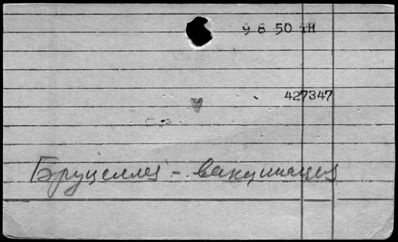 9 6 50 TH
427347
Бруцеллез - вакцинация